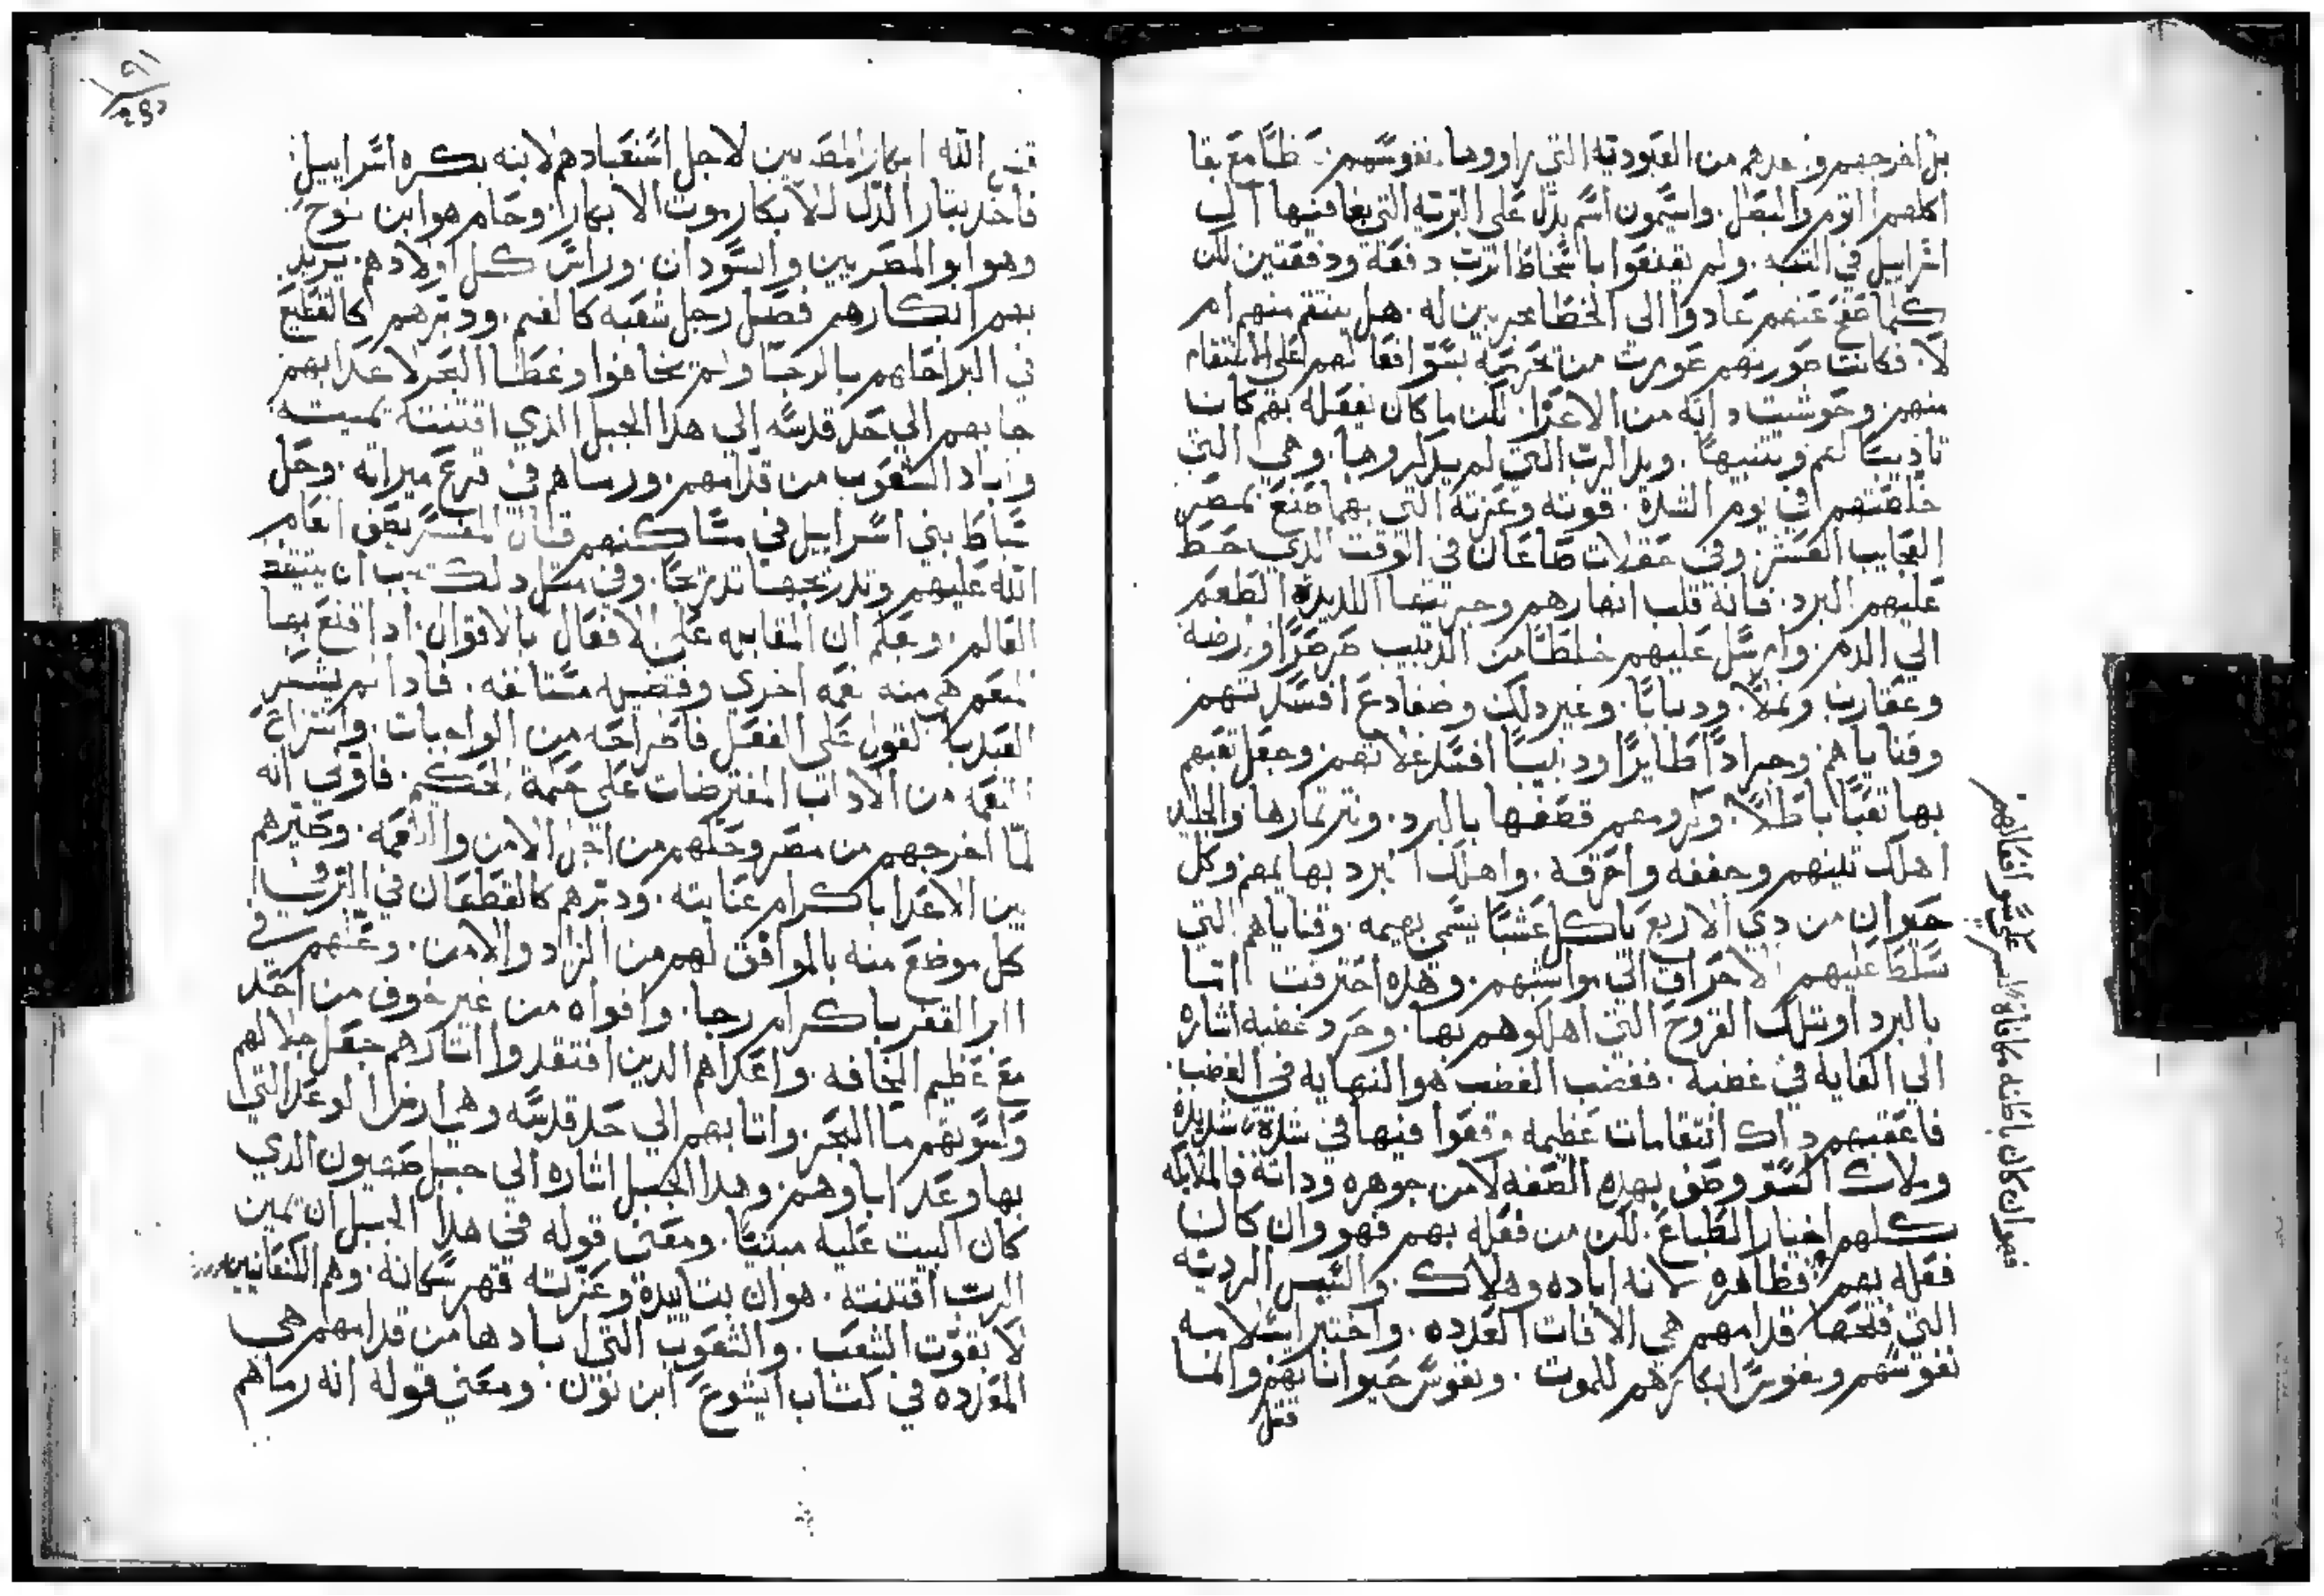 بل اخرجهم وخدهم من العبوديه التي راووها نفوسهم مع بقا
اكلهم التوم والبصل. واسيمون اسم يدل علي البريه التي بقا فيها ال
اسراييل في التيه. ولم يقنعوا باسخاط الرب دفعة ودفعتين لكن
كلما صفح عنهم عادوا الي الخطا مجربين له. هل ينتقم منهم ام
لا. فكانت صورتهم صورت من تحربته بسو افعالهم علي الانتقام
منهم. وحوشيت داته من الاعزا. لكن ما كان يفعله بهم كان
تاديبًا لهم وتنبيهًا. ويد الرب التي لم يدكروها. وهي التي
خلصتهم في يوم الشدة. قوته وعزته التي بها صنع بمصر
العجايب العشر. وفي حقلات صاعان في الوقت الذي حط
عليهم البرد. فانه قلب انهارهم وجريتها اللديده الطعم
الي الدم. وارسل عليهم خلطًا من الدبيب صرصرًا وارضة
وعقارب ونملًا. ودبابًا. وغير دلك وضفادع افسدتهم
وقناياهم. وجرادًا طايرًا ودبيبًا افسد غلاتهم. وجعل تعبهم
بها تعبًا باطلًا. وكرومهم قصفها بالبرد. ونتر تمارها والجليد
اهلك تلينهم وجففه واحرقه. واهلك البرد بهايمهم وكل
حيوان من دي الاربع ياكل عشبًا يسمي بهيمه. وقناياهم التي
سلط عليهم الاحراق الي مواشيهم. وهده احترقت اما
بالبرد او بتلك القروح التي اهلكوهم بها. وحرد غضبه اشاره
الي الغايه في غضبه. فغضب الغضب هو النهايه في الغضب.
فاعقبهم داك انتقامات عظيمه وقعوا فيها في شدة شديدة
وملاك السو وصف بهده الصفه لا من جوهره وداته فالملايكه
كلهم اخيار الطباع. لكن من فعله بهم فهو وان كان
فعله بهم فظاهره لانه اباده وهلاك. والسبل الرديه
التي فتحها قدامهم هي الافات المعدده. واختبر اسلامه
نفوسهم ونفوس ابكارهم للموت. ونفوس حيواناتهم وانما
قتل
فهو ان كان باطنه مكافاة لهم علي سو افعالهم
٩١
قتل الله ابكار المصريين لاجل استعبادهم لابنه بكره اسراييل
فاخد بتار الدل للابكار بموت الابكار. وحام هو ابن نوح
وهو ابو المصريين والسودان. وراس كل اولادهم. يريد
بهم ابكارهم فصل رجل شعبه كالغنم. ودبرهم كالقطيع
في البر احلهم بالرجا ولم يخافوا وغطا البحر لاعدايهم
جا بهم الي حد قدسه الي هدا الجبل الدي اقتنته يمينه
واباد الشعوب من قدامهم. ورساهم في قرع ميراثه. وحل
سباط بني اسراييل في مساكنهم قال المفسر بعض انعام
الله عليهم وتدرجها تدرجًا. وفي مثل دلك يجب ان ينتقد
العالم. ويعلم ان المقابله علي الافعال بالاقوال. ادا قنع بها
المنعم هي منه نعمه اخري وقضيه مستانفه. فادا لم يشكر
العبد بالقول علي الفعل فاطراحه من الواجبات. وانتزاع
النعمه من الاداب المفترضات علي حكمة الحكيم. فاولي انه
لما اخرجهم من مصر وحلهم من اجل الامن والنعمه. وصيرهم
بين الاعدا باكرام عنايته. ودبرهم كالقطعان في البر في
كل موضع منه بالموافق لهم من الزاد والامن. وعبهم في
البر القفر باكرام رجا. وافواه من غير خوف من احد
مع عظيم المخافه. واعداهم الدين افتقدوا اثارهم جعل جلالهم
وكسوتهم ما البحر. واتا بهم الي حد قدسه وهي ارض الوعد التي
بها وعد اباوهم. وهدا الجبل اشاره الي جبل صهيون الدي
كان البيت عليه مبنيًا. ومعني قوله في هدا الجبل ان يمين
الرب اقتنته. هو ان بتاييدة وعزته قهر سكانه. وهم الكنعانيين
لا بقوت الشعب. والشعوب التي ابادها من قدامهم هي
المعدده في كتاب ايشوع ابن نون. ومعني قوله انه رماهم